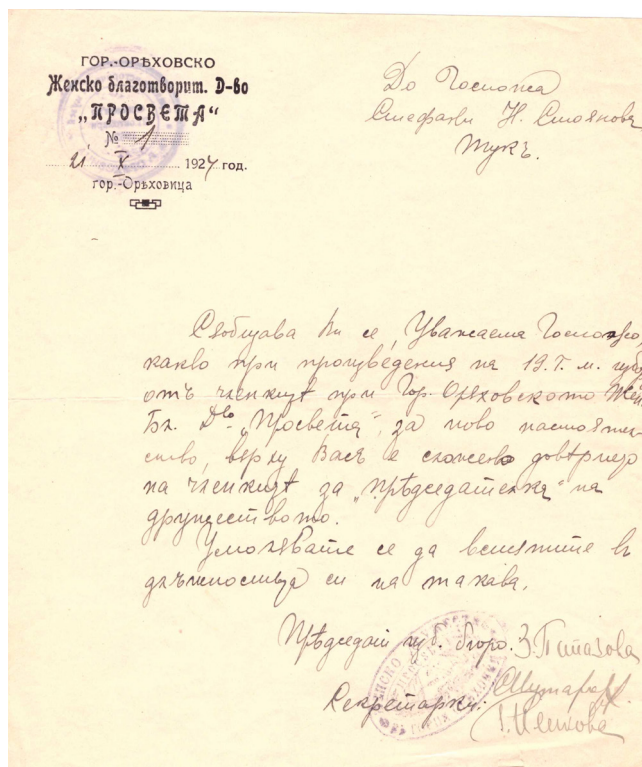 ГОР.-ОРѢХОВСКО
Женско благотворит. Д-во
„ПРОСВЕТА“
№ 1
21 X 1927 год.
гор.-Орѣховица
До Госпожа
Стефани Н. Стоянова
Тукъ.
Съобщава Ви се, Уважаема Госпожо,
какво при произведения на 19.т.м. изб
отъ членкитѣ при Гор. Орѣховското Жен
Бл. Д-во „Просвета“, за ново настоятел-
ство, върху Васъ е сложено довѣрието
на членкитѣ за „прѣдседателка“ на
дружеството.
Умолявате се да встѫпите въ
длъжностьта си на такава.
Прѣдседат. изб. бюро: З.
Секретарки: